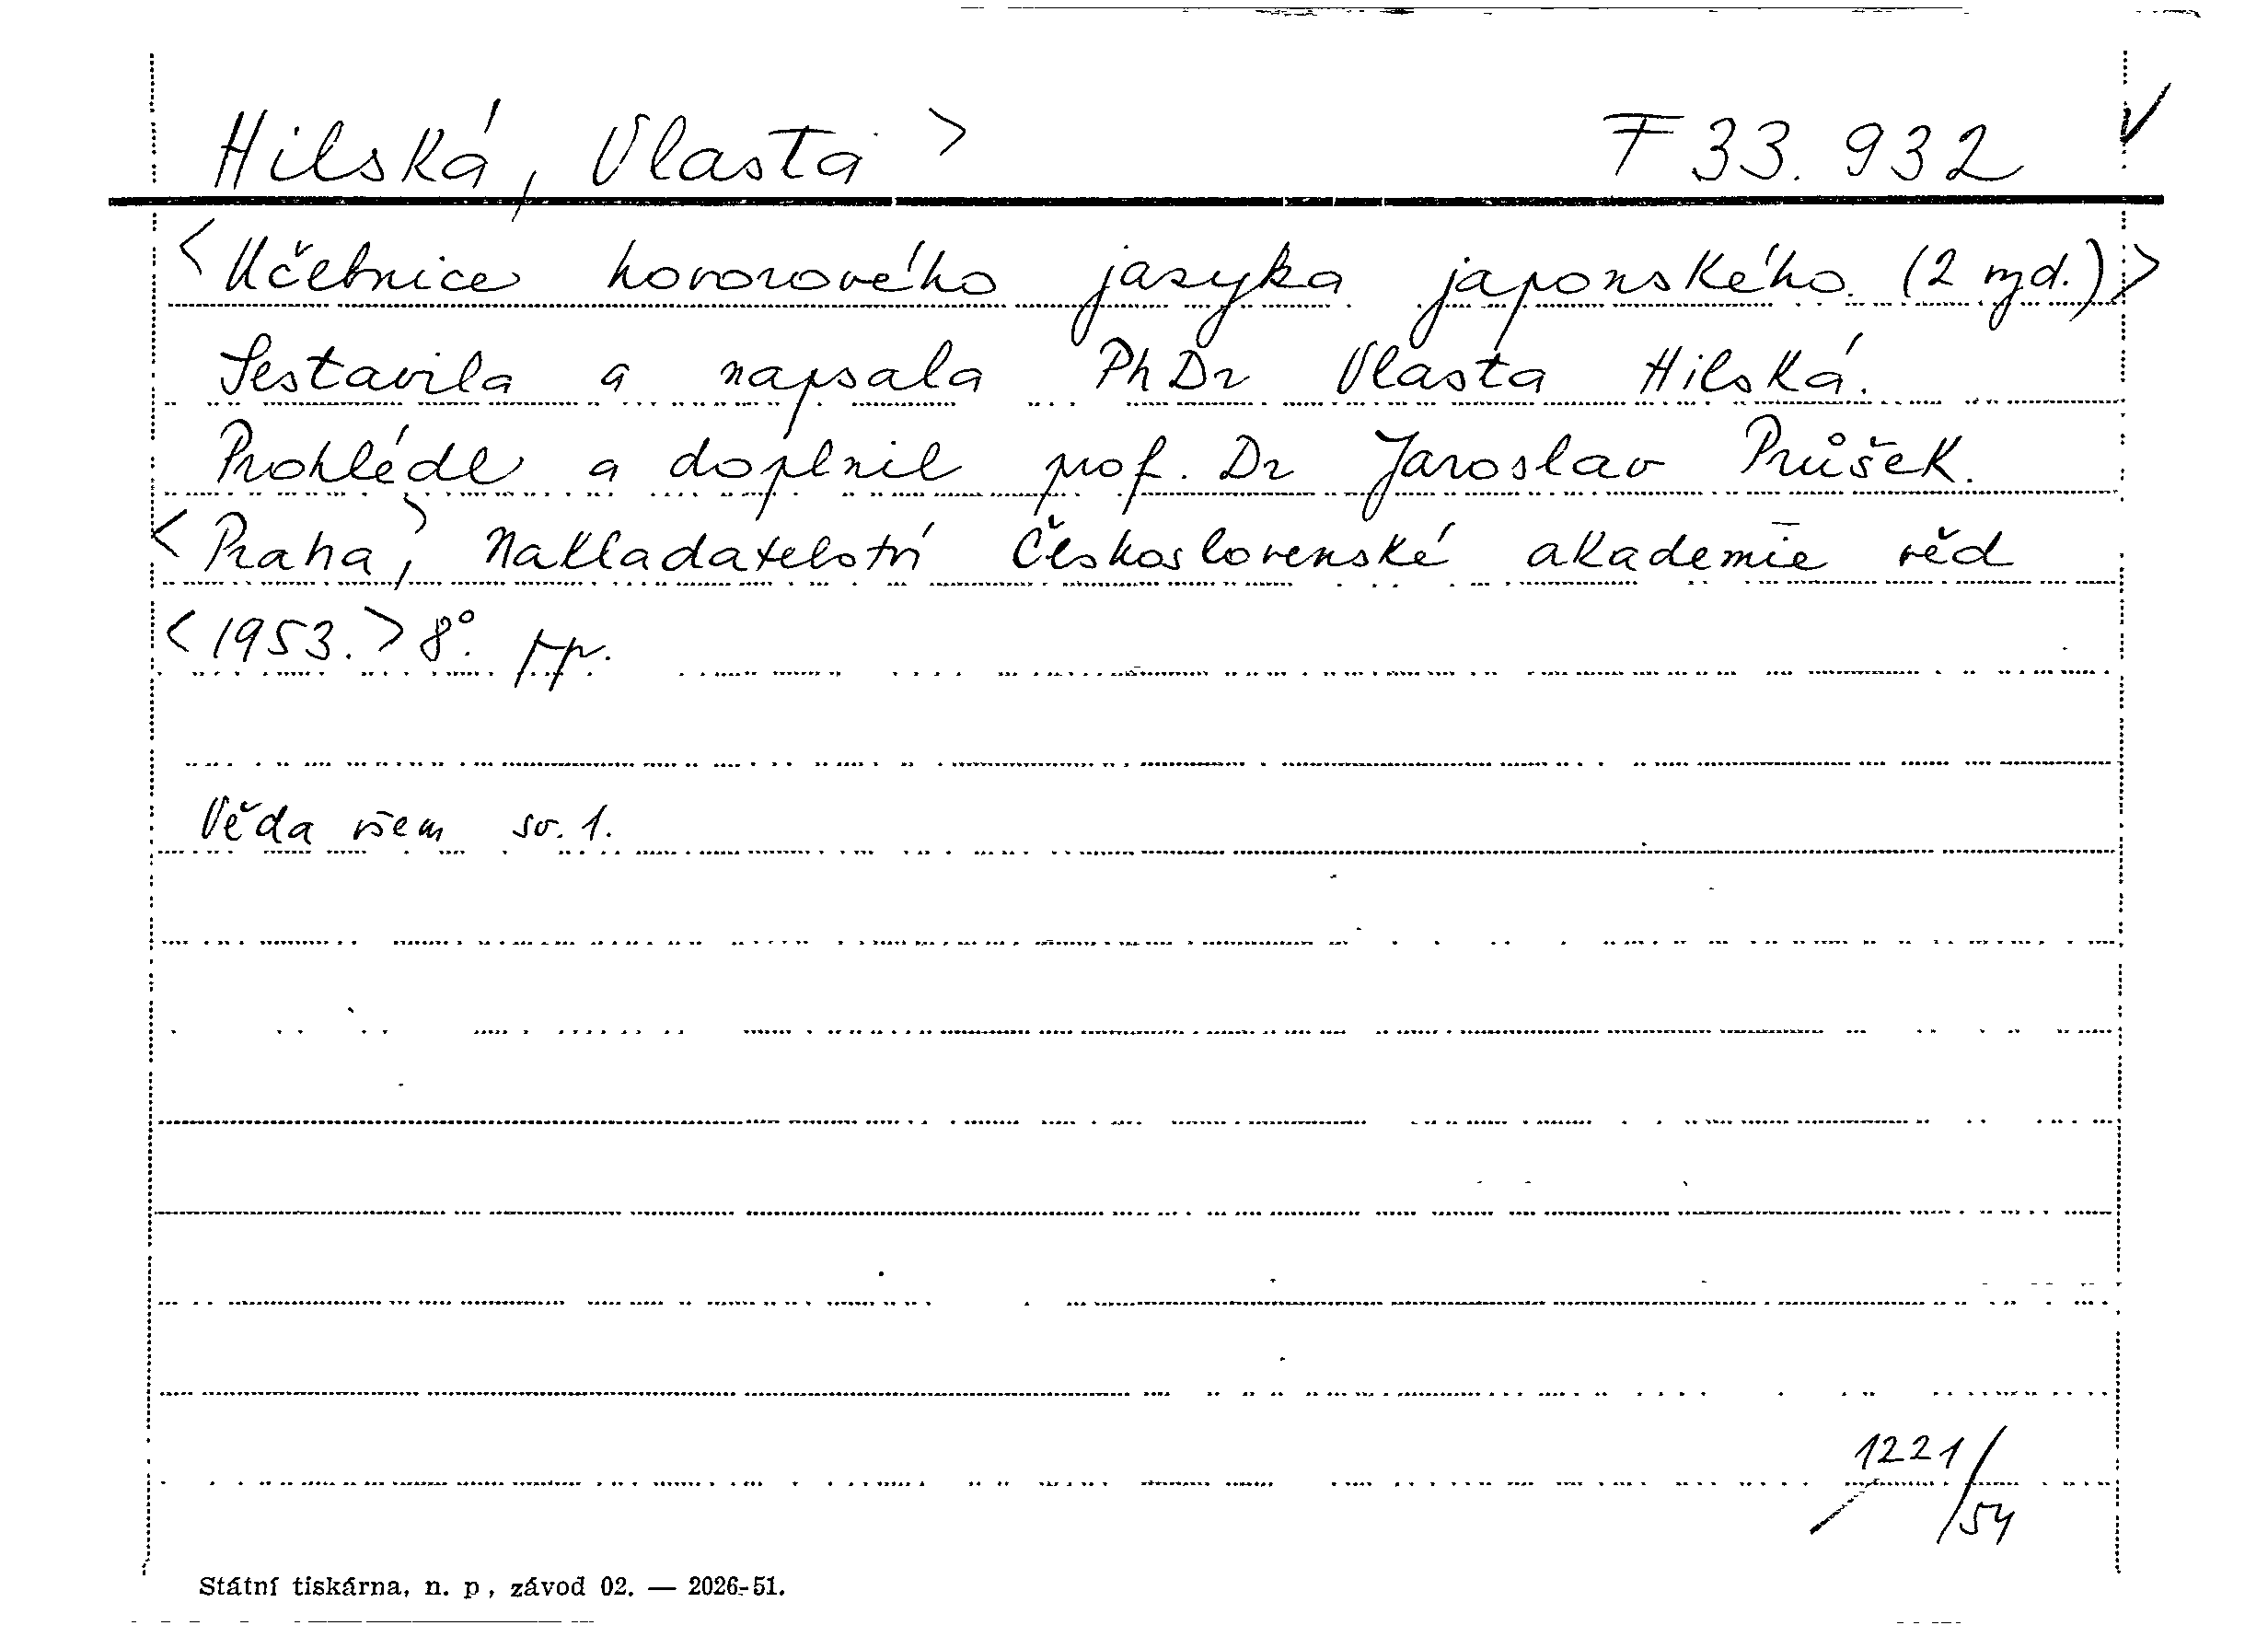 Hilská, Vlasta > F 33.932 ✓
<Učebnice hovorového jazyka japonského. (2 vyd.)>
Sestavila a napsala PhDr Vlasta Hilská.
Prohlédl a doplnil prof. Dr Jaroslav Průšek.
<Praha,> Nakladatelství Československé akademie věd
<1953.> 8°.
Věda všem sv. 1.
1221/54
Státní tiskárna, n. p, závod 02. — 2026-51.